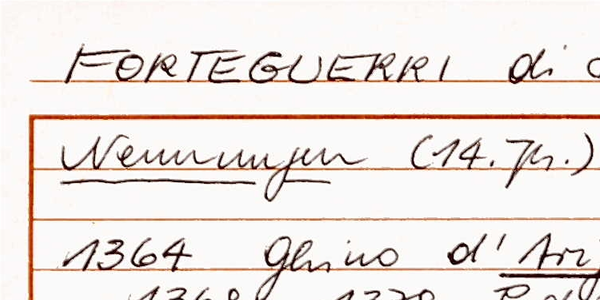 FORTEGUERRI di
Nennungen (14. Jh.)
1364 Ghino d'
1368 1370